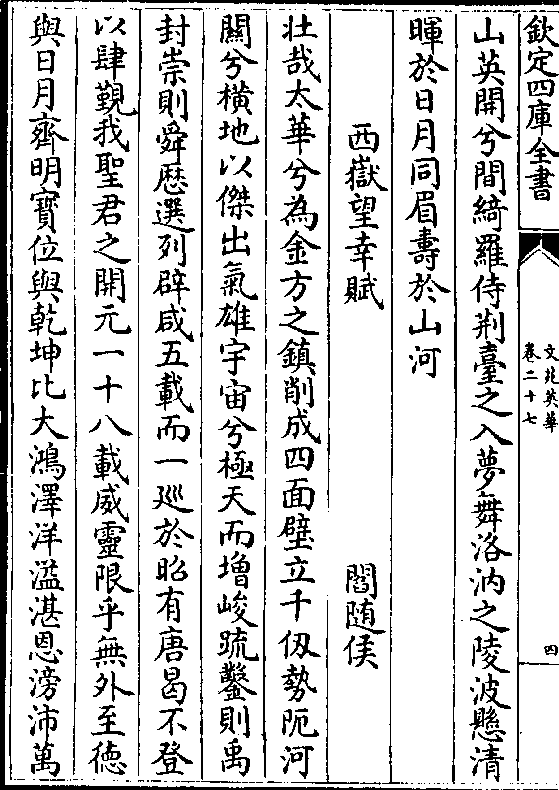 欽定四庫全書
文苑英華
卷二十七
四
山英開兮間綺羅侍荆臺之入夢舞洛汭之陵波懸清
暉於日月同眉壽於山河
西嶽望幸賦 閻随侯
壯哉太華兮為金方之鎮削成四面壁立千仭勢阨河
關兮横地以傑出氣雄宇宙兮極天而增峻疏鑿則禹
封崇則舜歴選列辟咸五載而一廵於昭有唐曷不登
以肆覲我聖君之開元一十八載威靈限乎無外至徳
與日月齊明寳位與乾坤比大鴻澤洋溢湛恩滂沛萬